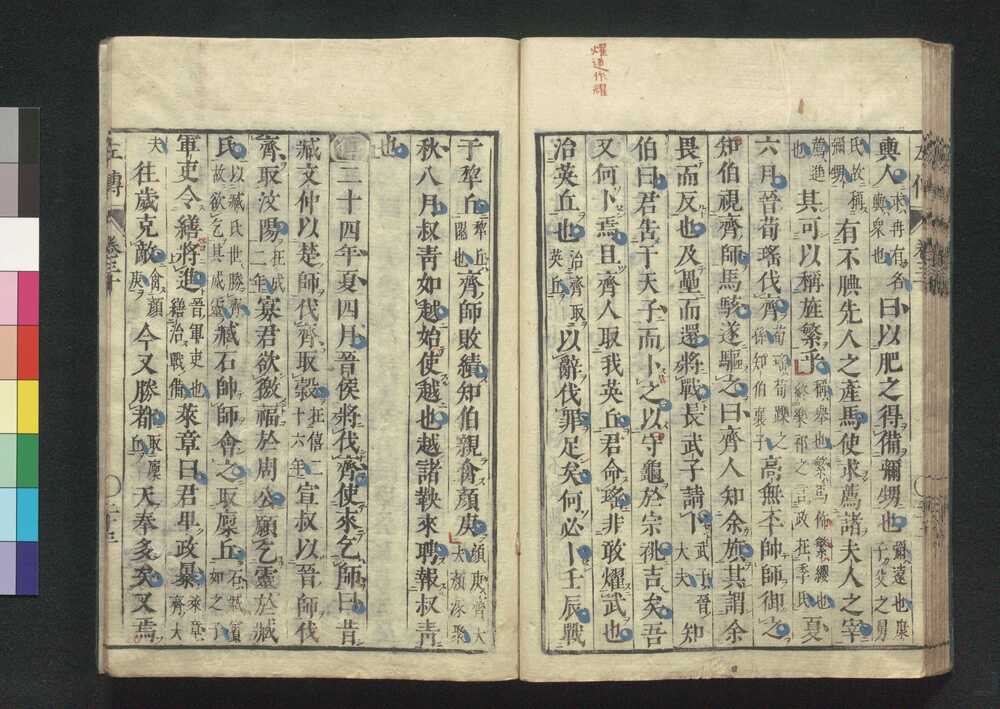 燿進作耀
輿人求冉有名輿衆也曰以肥之得備彌甥也彌遠也康子父之舅
氏故稱彌甥有不腆先人之產馬使求薦諸夫人之宰
薦進也其可以稱旌繁乎稱舉也繁馬飾繁纓也終樂祁之言政在季氏夏
六月晉荀瑤伐齊荀瑤荀躒之孫知伯襄子高無㔻帥師御之
知伯視齊師馬駭遂驅之曰齊人知余旗其謂余
畏而反也及壘而還將戰長武子請卜武子晉大夫知
伯曰君告于天子而卜之以守龜於宗祧吉矣吾
又何卜焉且齊人取我英丘君命瑤非敢燿武也
治英丘也治齊取英丘以辭伐罪足矣何必卜壬辰戰
于犂丘犂丘隰也齊師敗績知伯親禽顏庚顏庚齊大夫顏涿聚
秋八月叔青如越始使越也越諸鞅來聘報叔青
也
二十四年夏四月晉侯將伐齊使來乞師曰昔
臧文仲以楚師伐齊取穀在僖二十六年宣叔以晉師伐
齊取汶陽在成二年寡君欲徼福於周公願乞靈於臧
氏以臧氏世勝齊故欲乞其威靈臧石帥師會之取廩丘石臧賓如之子
軍吏令繕將進晉軍吏也繕治戰備萊章曰君卑政暴萊章齊大
夫往歲克敵禽顏庚今又勝都取廩丘天奉多矣又焉
左傳 卷三十